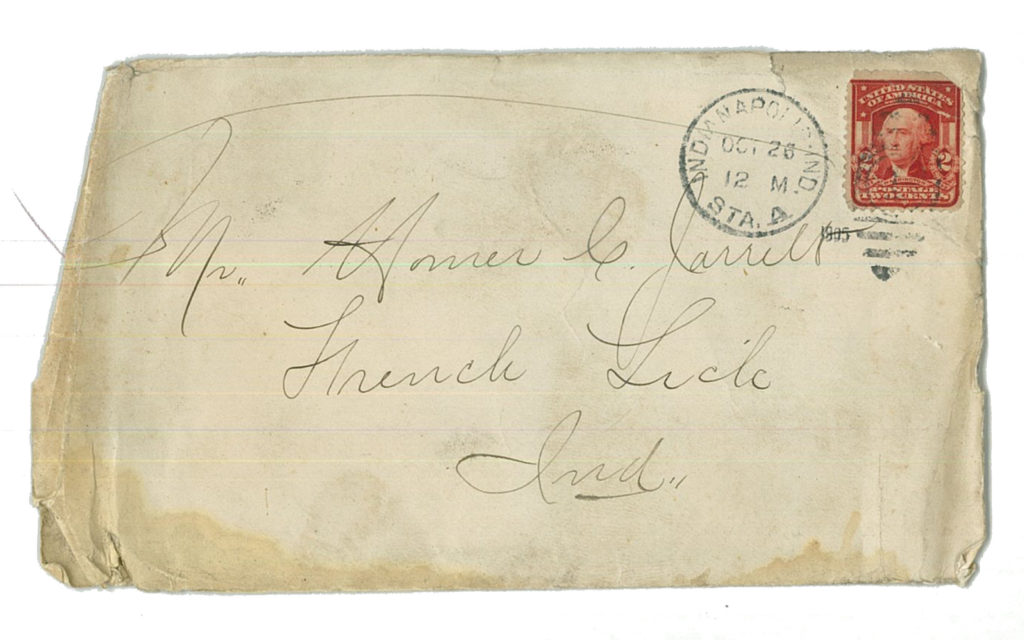 INDIANAPOLIS, IND.
OCT 26
12 M.
STA. A
1905
UNITED STATES
OF AMERICA
2 2
POSTAGE
TWO CENTS
Mr. Homer C. Jarrett
French Lick
Ind.